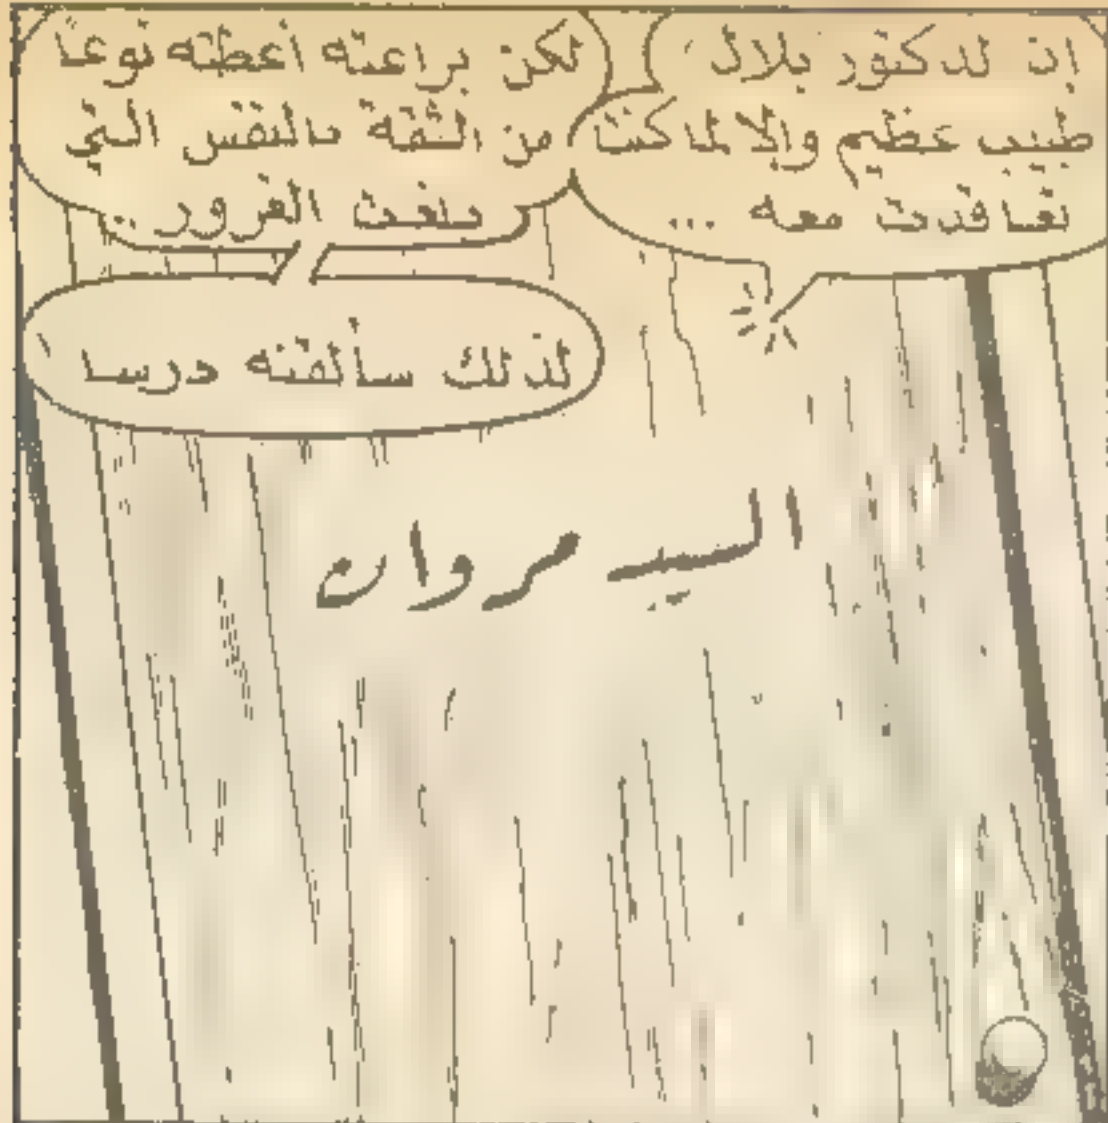 إن لدكتور بلال
طبيب عظيم وإلا لما كنت
تعاقدت معه ...
لكن براعته أعطته نوعًا
من الثقة بالنفس التي
بلغت الغرور ..
لذلك سألقنه درسا
السيد مروان